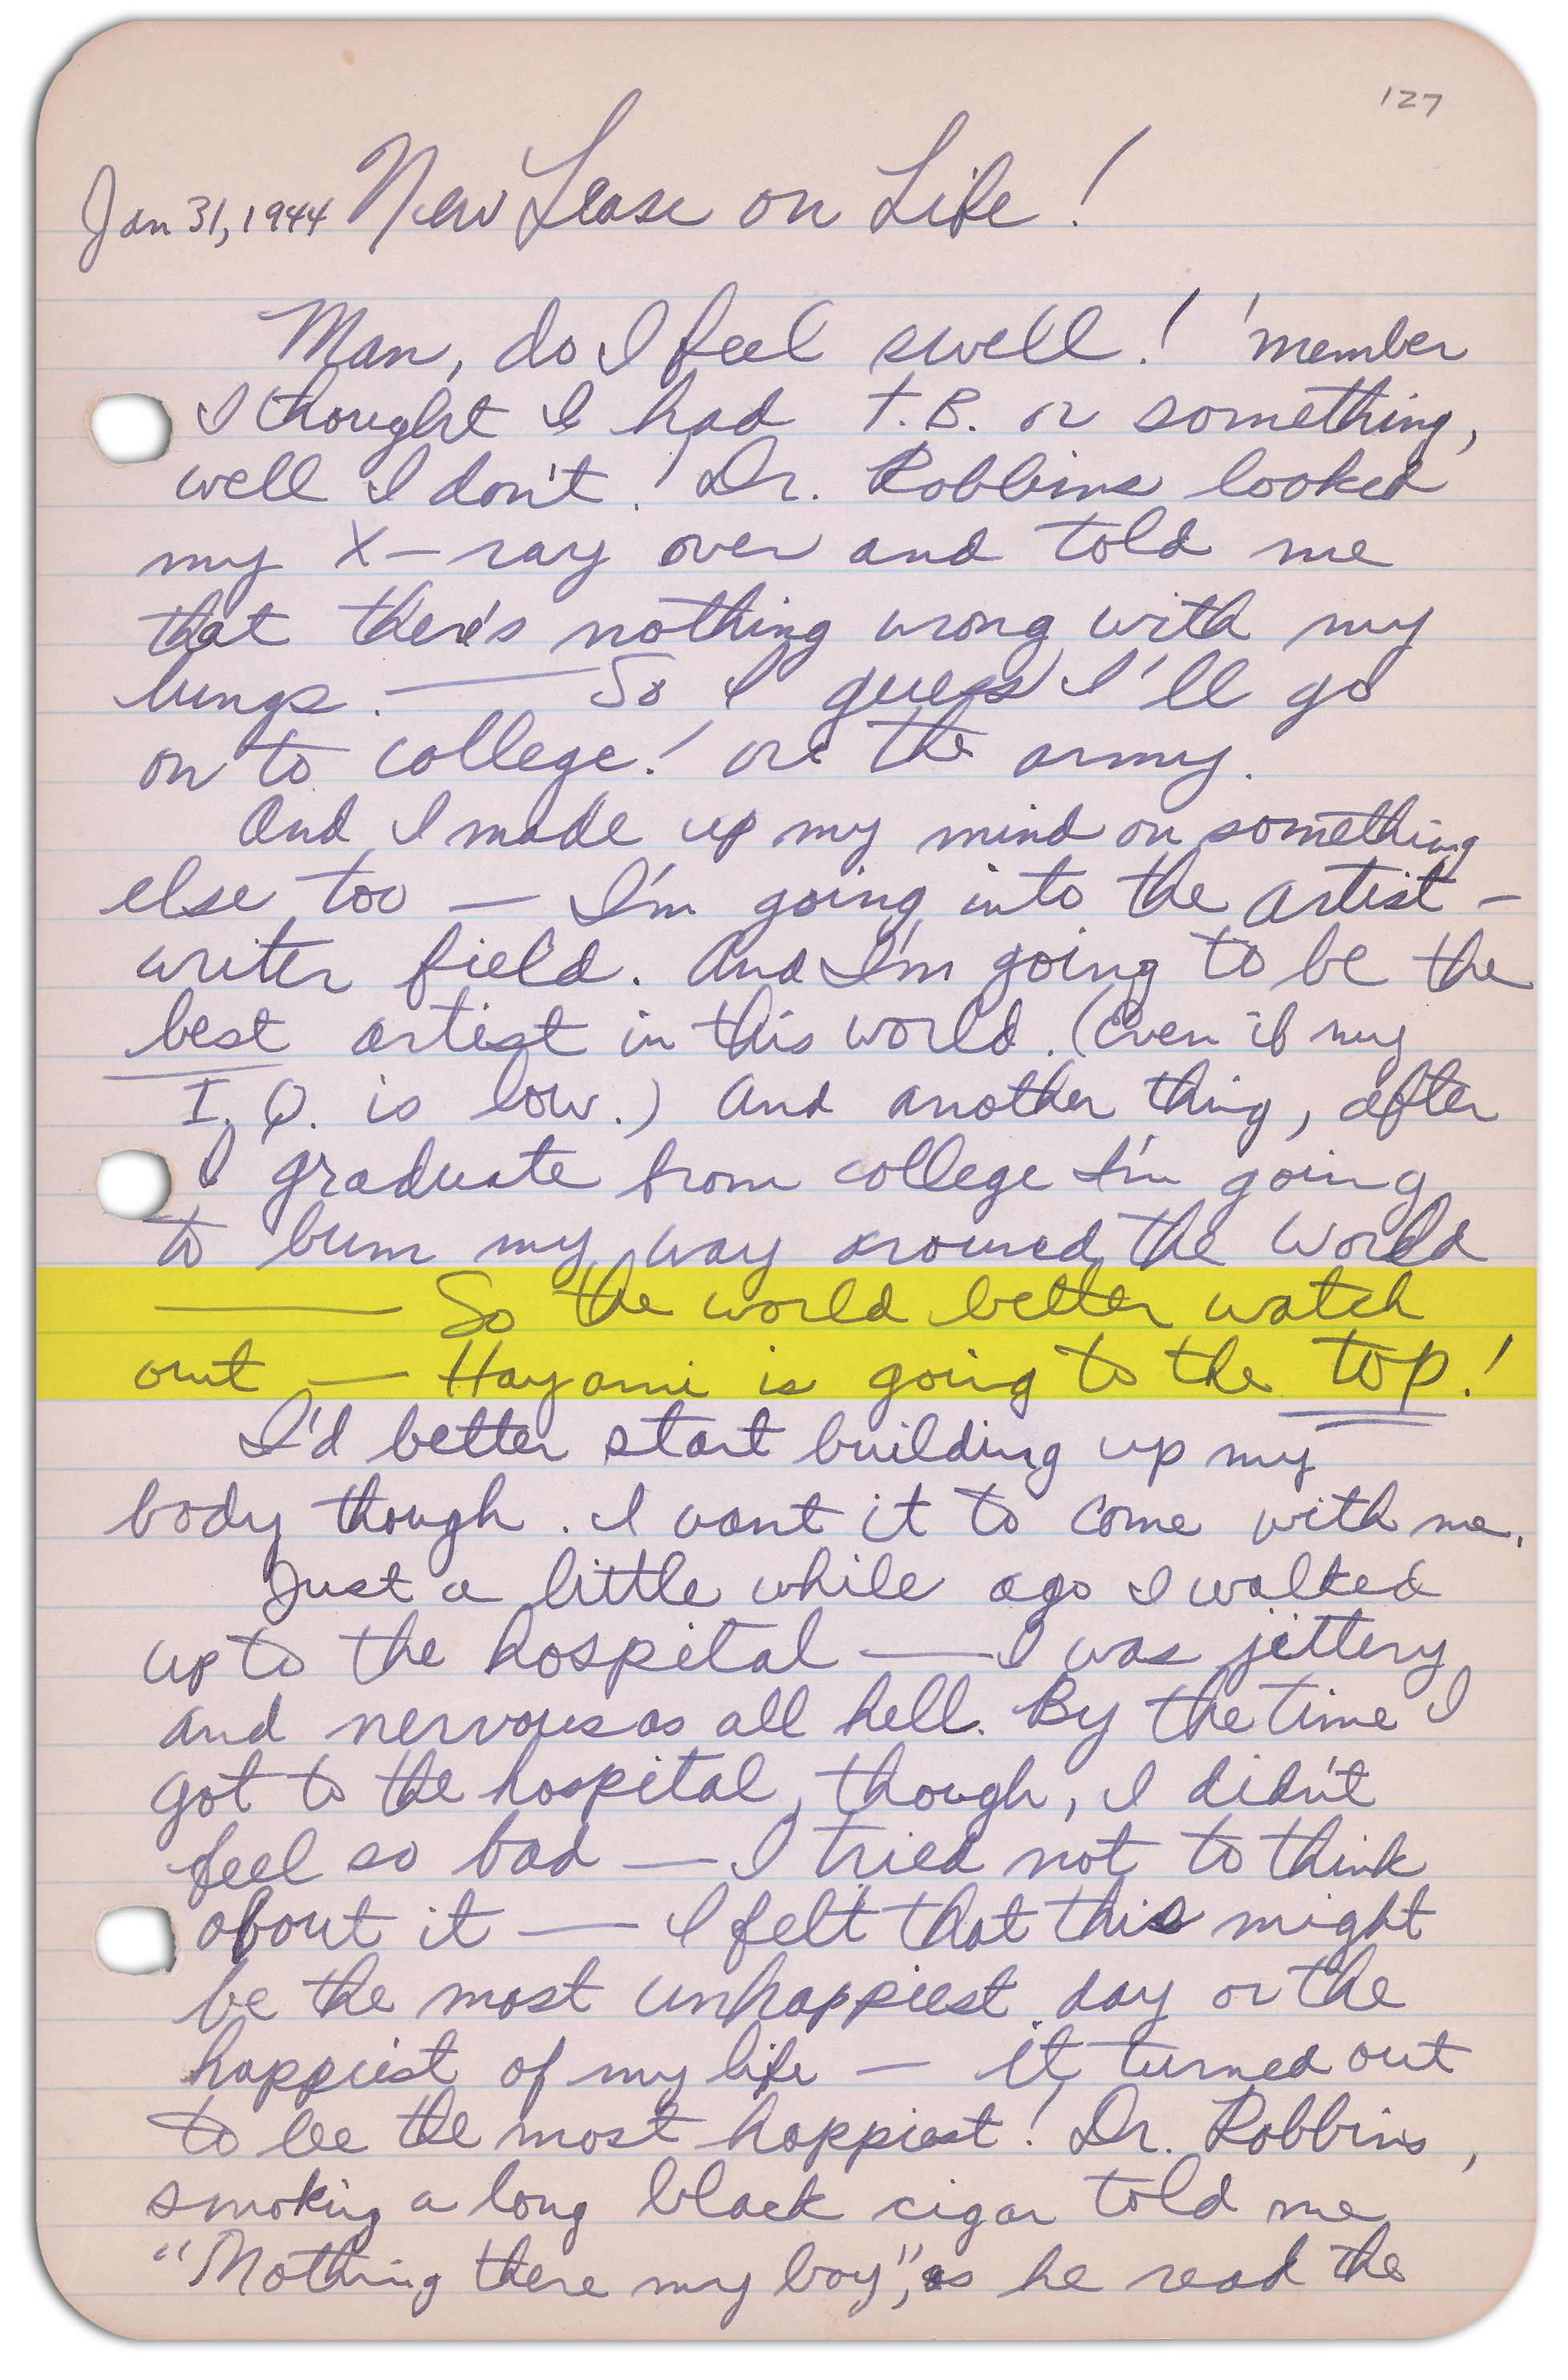 127
Jan 31, 1944 New Lease on Life!
Man, do I feel swell! 'member
I thought I had T.B. or something,
well I don't! Dr. Robbins looked
my X-ray over and told me
that there's nothing wrong with my
lungs. — So I guess I'll go
on to college! or the army.
And I made up my mind on something
else too — I'm going into the artist-
writer field. And I'm going to be the
best artist in this world. (Even if my
I.Q. is low.) And another thing, after
I graduate from college I'm going
to bum my way around the world
— So the world better watch
out — Hayami is going to the top!
I'd better start building up my
body though. I want it to come with me.
Just a little while ago I walked
up to the hospital — I was jittery
and nervous as all hell. By the time I
got to the hospital, though, I didn't
feel so bad — I tried not to think
about it — I felt that this might
be the most unhappiest day or the
happiest of my life — it turned out
to be the most happiest! Dr. Robbins,
smoking a long black cigar told me
"Nothing there my boy", as he read the